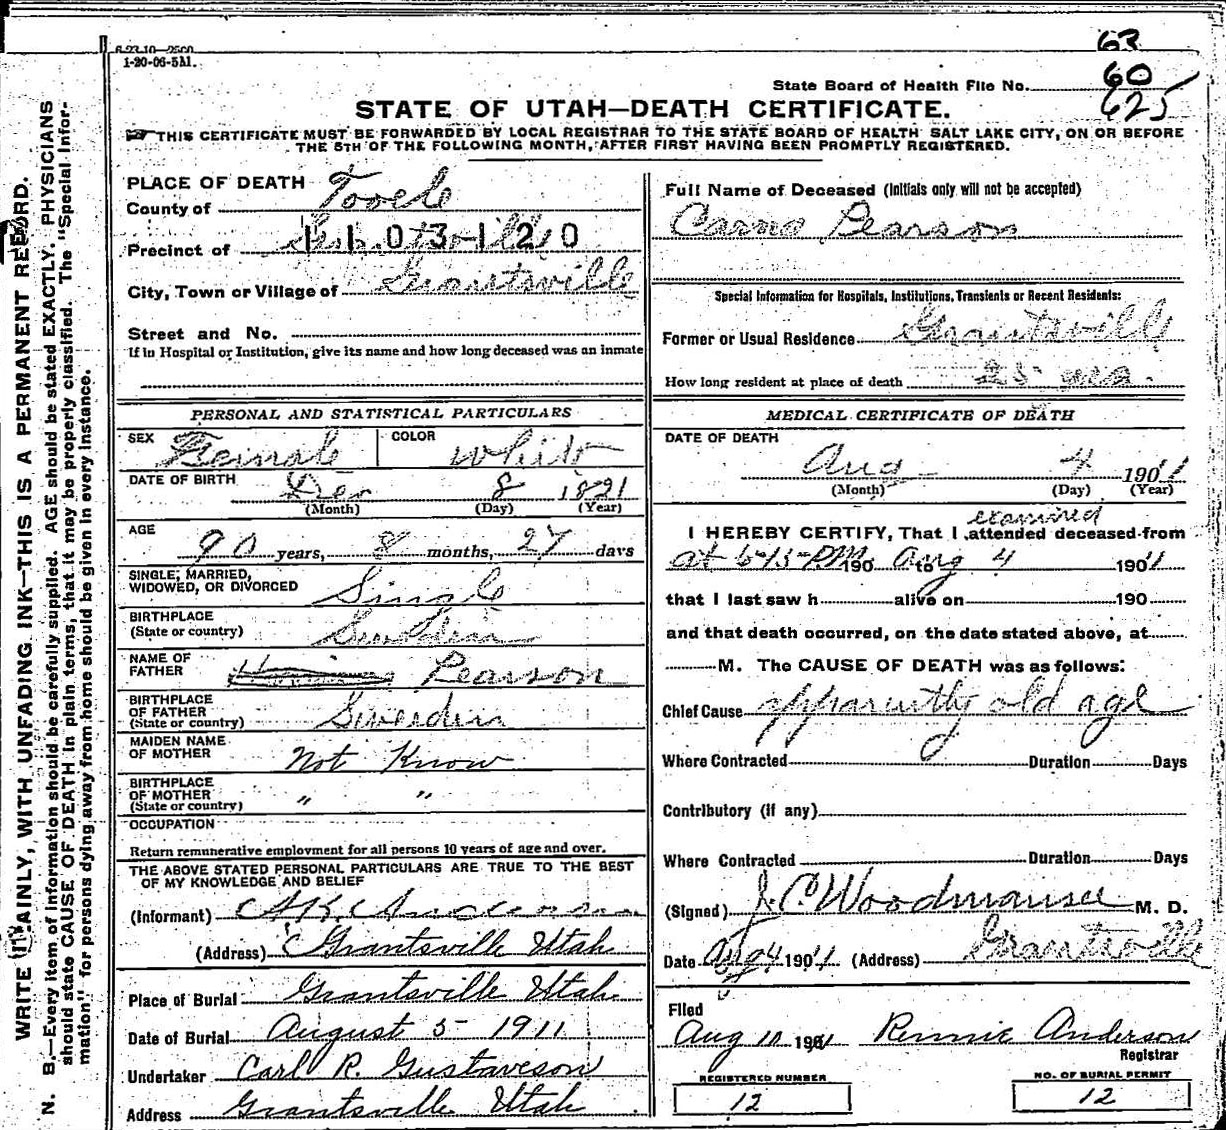 6-23-10-2500
1-20-06-5M.
63
State Board of Health File No. 60
625
STATE OF UTAH—DEATH CERTIFICATE.
THIS CERTIFICATE MUST BE FORWARDED BY LOCAL REGISTRAR TO THE STATE BOARD OF HEALTH SALT LAKE CITY, ON OR BEFORE
THE 5TH OF THE FOLLOWING MONTH, AFTER FIRST HAVING BEEN PROMPTLY REGISTERED.
WRITE PLAINLY, WITH UNFADING INK—THIS IS A PERMANENT RECORD.
N. B.—Every item of information should be carefully supplied. AGE should be stated EXACTLY. PHYSICIANS
should state CAUSE OF DEATH in plain terms, that it may be properly classified. The "Special Infor-
mation" for persons dying away from home should be given in every instance.
PLACE OF DEATH
County of Tooele
Precinct of
1103120
City, Town or Village of Grantsville
Street and No.
If in Hospital or Institution, give its name and how long deceased was an inmate
PERSONAL AND STATISTICAL PARTICULARS
SEX Female COLOR White
DATE OF BIRTH Dec 8 1821
(Month) (Day) (Year)
AGE 90 years, 8 months, 27 days
SINGLE, MARRIED,
WIDOWED, OR DIVORCED Single
BIRTHPLACE
(State or country) Sweden
NAME OF
FATHER Pearson
BIRTHPLACE
OF FATHER
(State or country) Sweeden
MAIDEN NAME
OF MOTHER Not Know
BIRTHPLACE
OF MOTHER
(State or country) " "
OCCUPATION
Return remunerative employment for all persons 10 years of age and over.
THE ABOVE STATED PERSONAL PARTICULARS ARE TRUE TO THE BEST
OF MY KNOWLEDGE AND BELIEF
(Informant) Anderson
(Address) Grantsville Utah
Place of Burial Grantsville Utah
Date of Burial August 5 1911
Undertaker Carl R. Gustaveson
Address Grantsville Utah
Full Name of Deceased (Initials only will not be accepted)
Pearson
Special Information for Hospitals, Institutions, Transients or Recent Residents:
Former or Usual Residence Grantsville
How long resident at place of death 25 yrs.
MEDICAL CERTIFICATE OF DEATH
DATE OF DEATH
Aug 4 1901 1
(Month) (Day) (Year)
examined
I HEREBY CERTIFY, That I attended deceased from
at 6-15-PM 190 to Aug 4 1901
that I last saw h alive on 190
and that death occurred, on the date stated above, at
M. The CAUSE OF DEATH was as follows:
Chief Cause apparently old age
Where Contracted Duration Days
Contributory (if any)
Where Contracted Duration Days
(Signed) J. C. Woodmansee M. D.
Date Aug 4 1901 (Address) Grantsville
Filed
Aug 10 1911 Rennie Anderson
Registrar
REGISTERED NUMBER
12
NO. OF BURIAL PERMIT
12